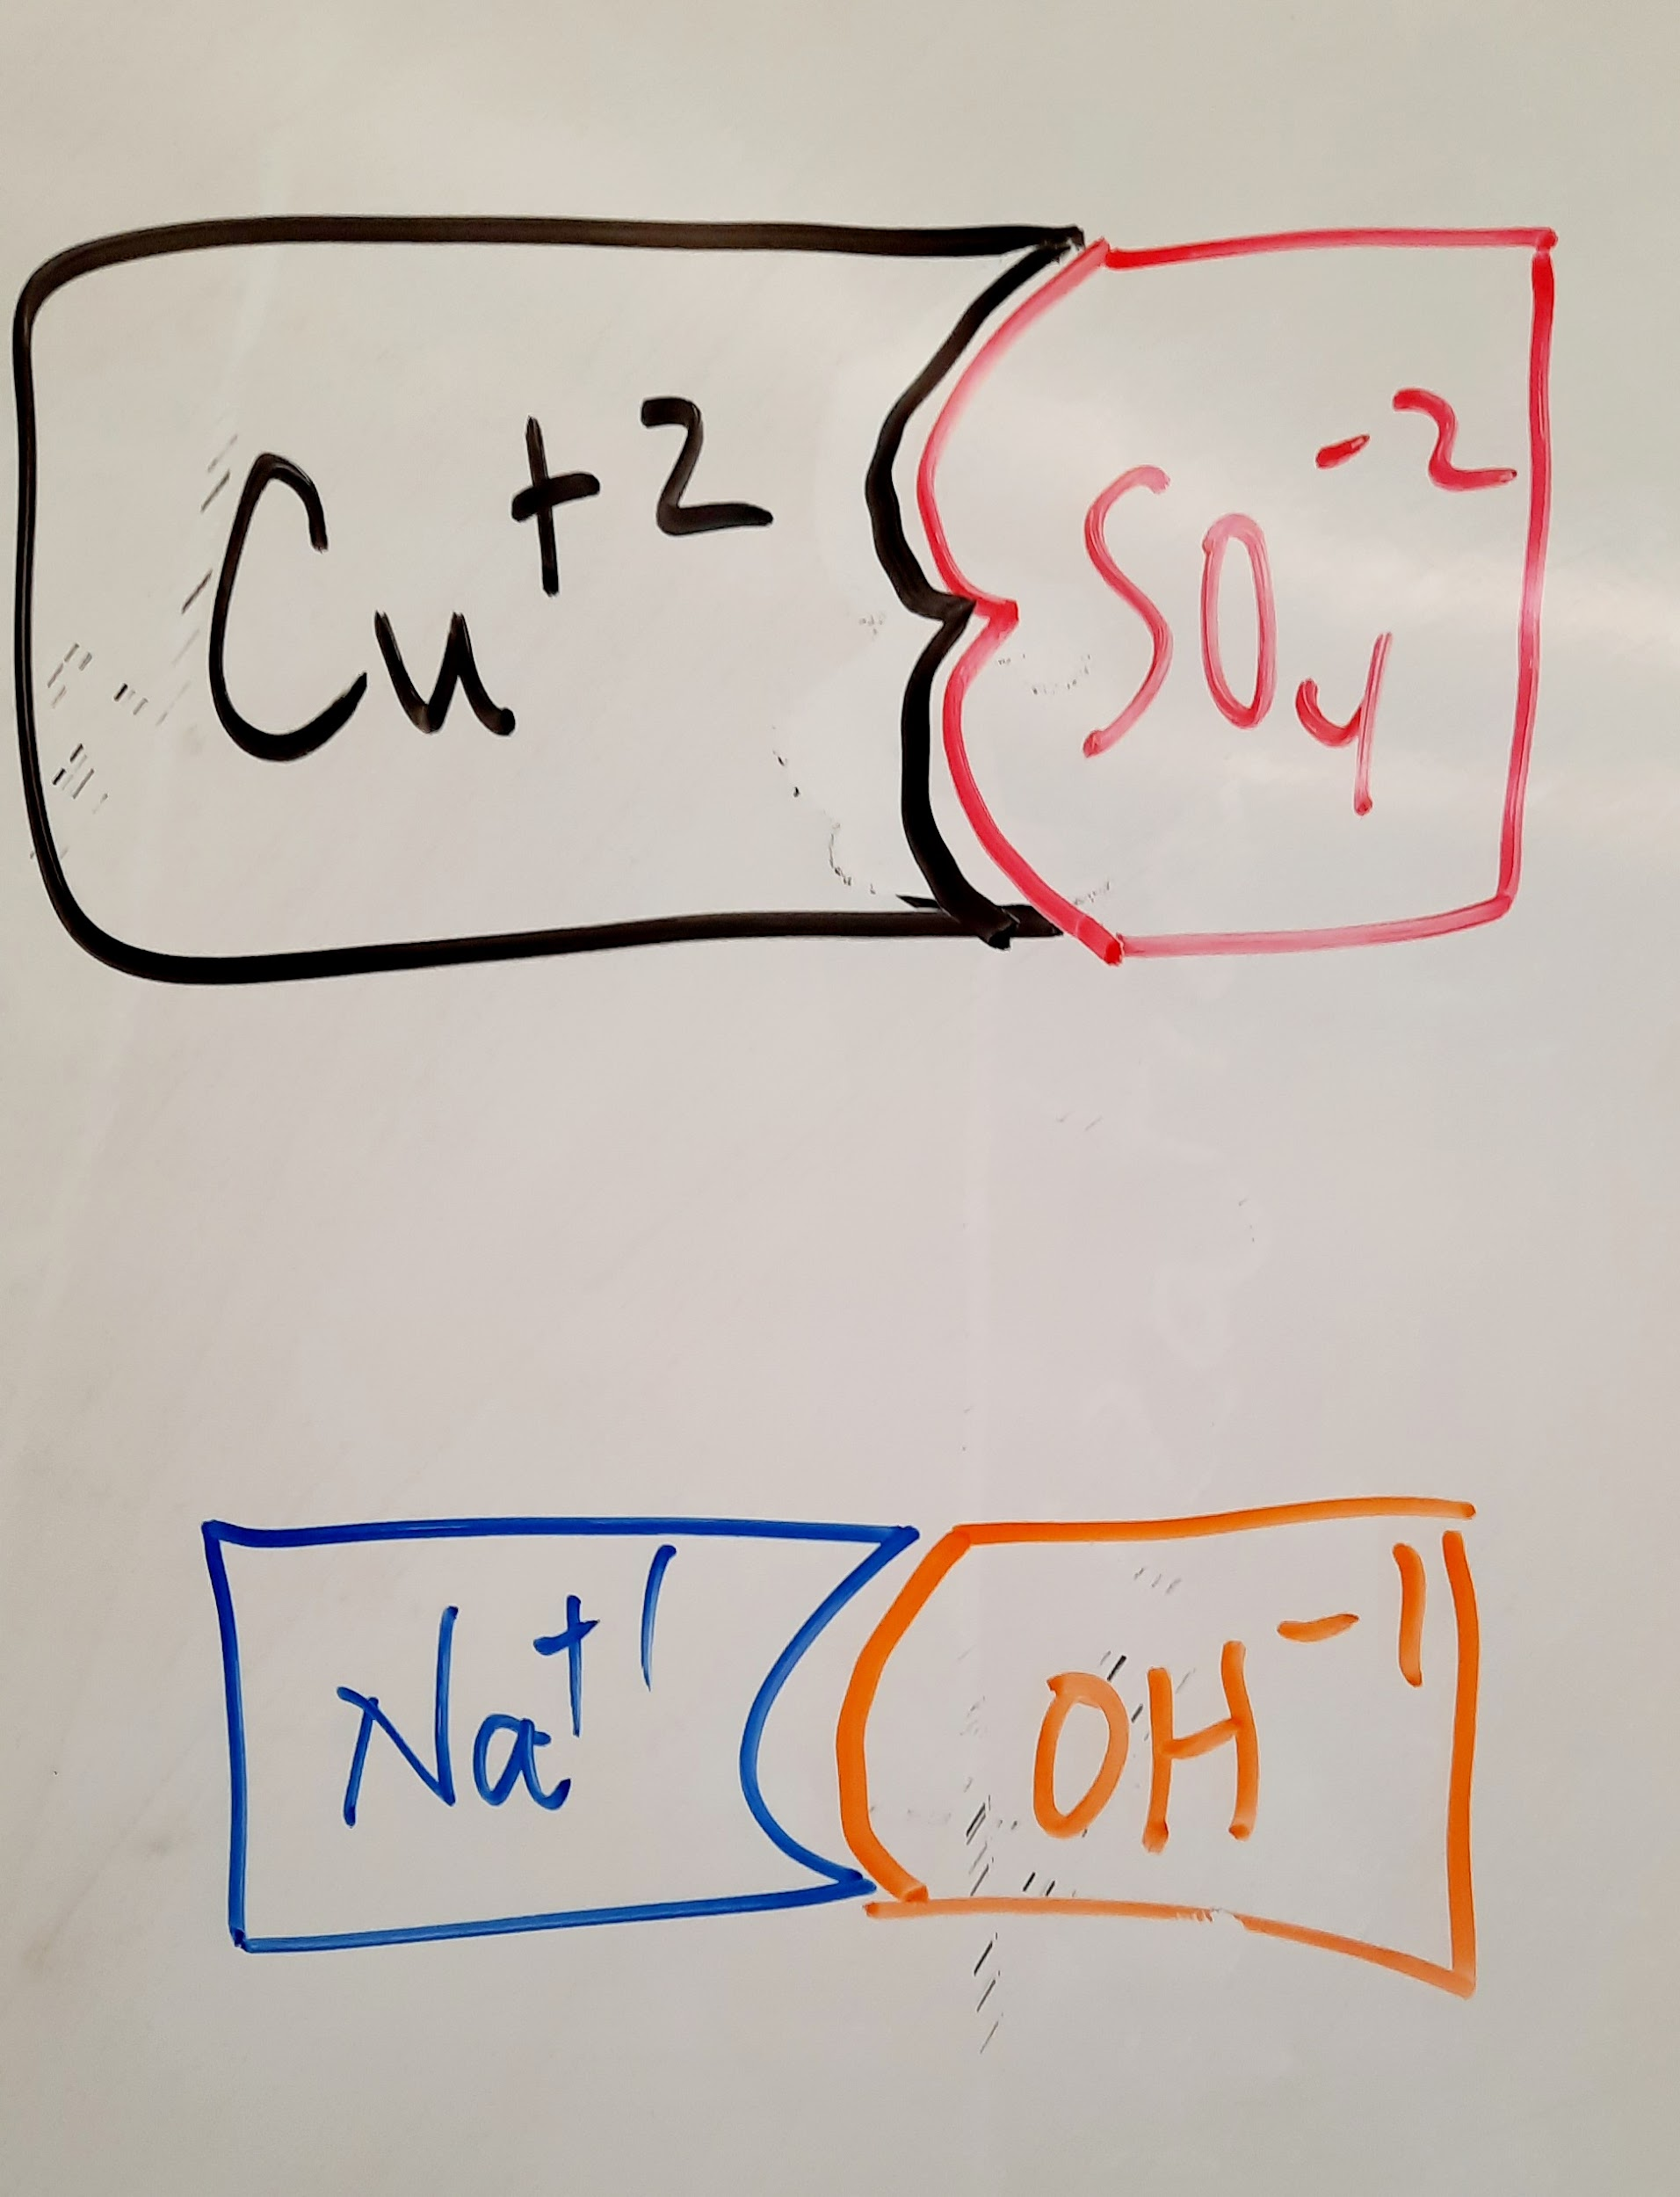 Cu+2 SO4-2
Na+1 OH-1